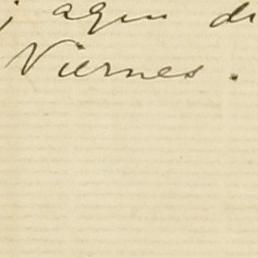 ; aqui de
Viernes.